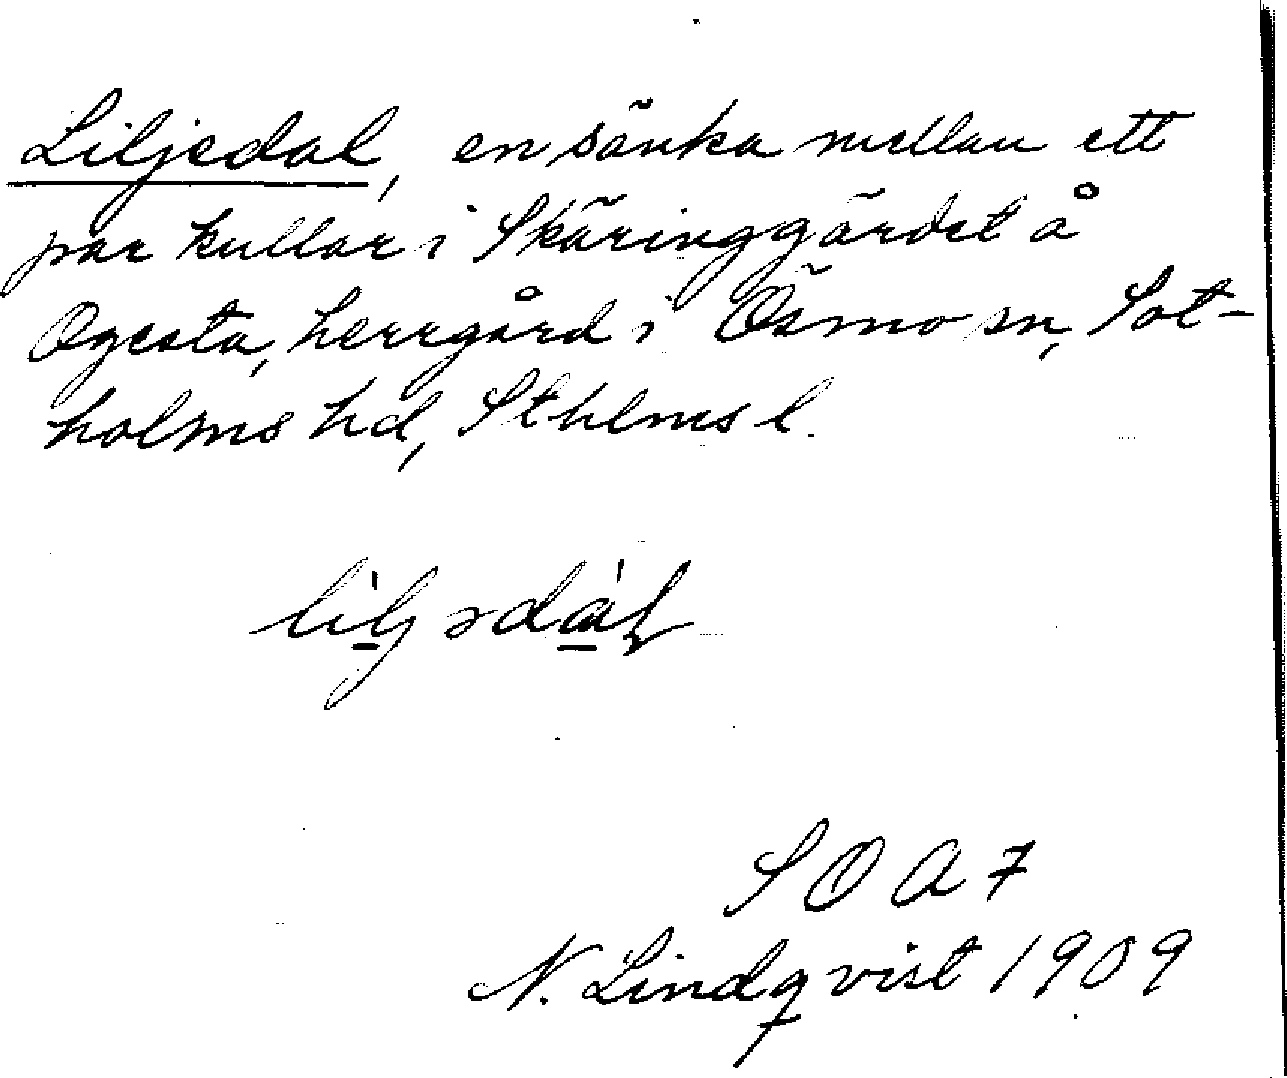 Liljedal, en sänka mellan ett
par kullar i Skäringgärdet å
Ogesta, herrgård i Ösmo sn, Sot-
holms hd, Sthlms l.
SOA 7
N. Lindqvist 1909